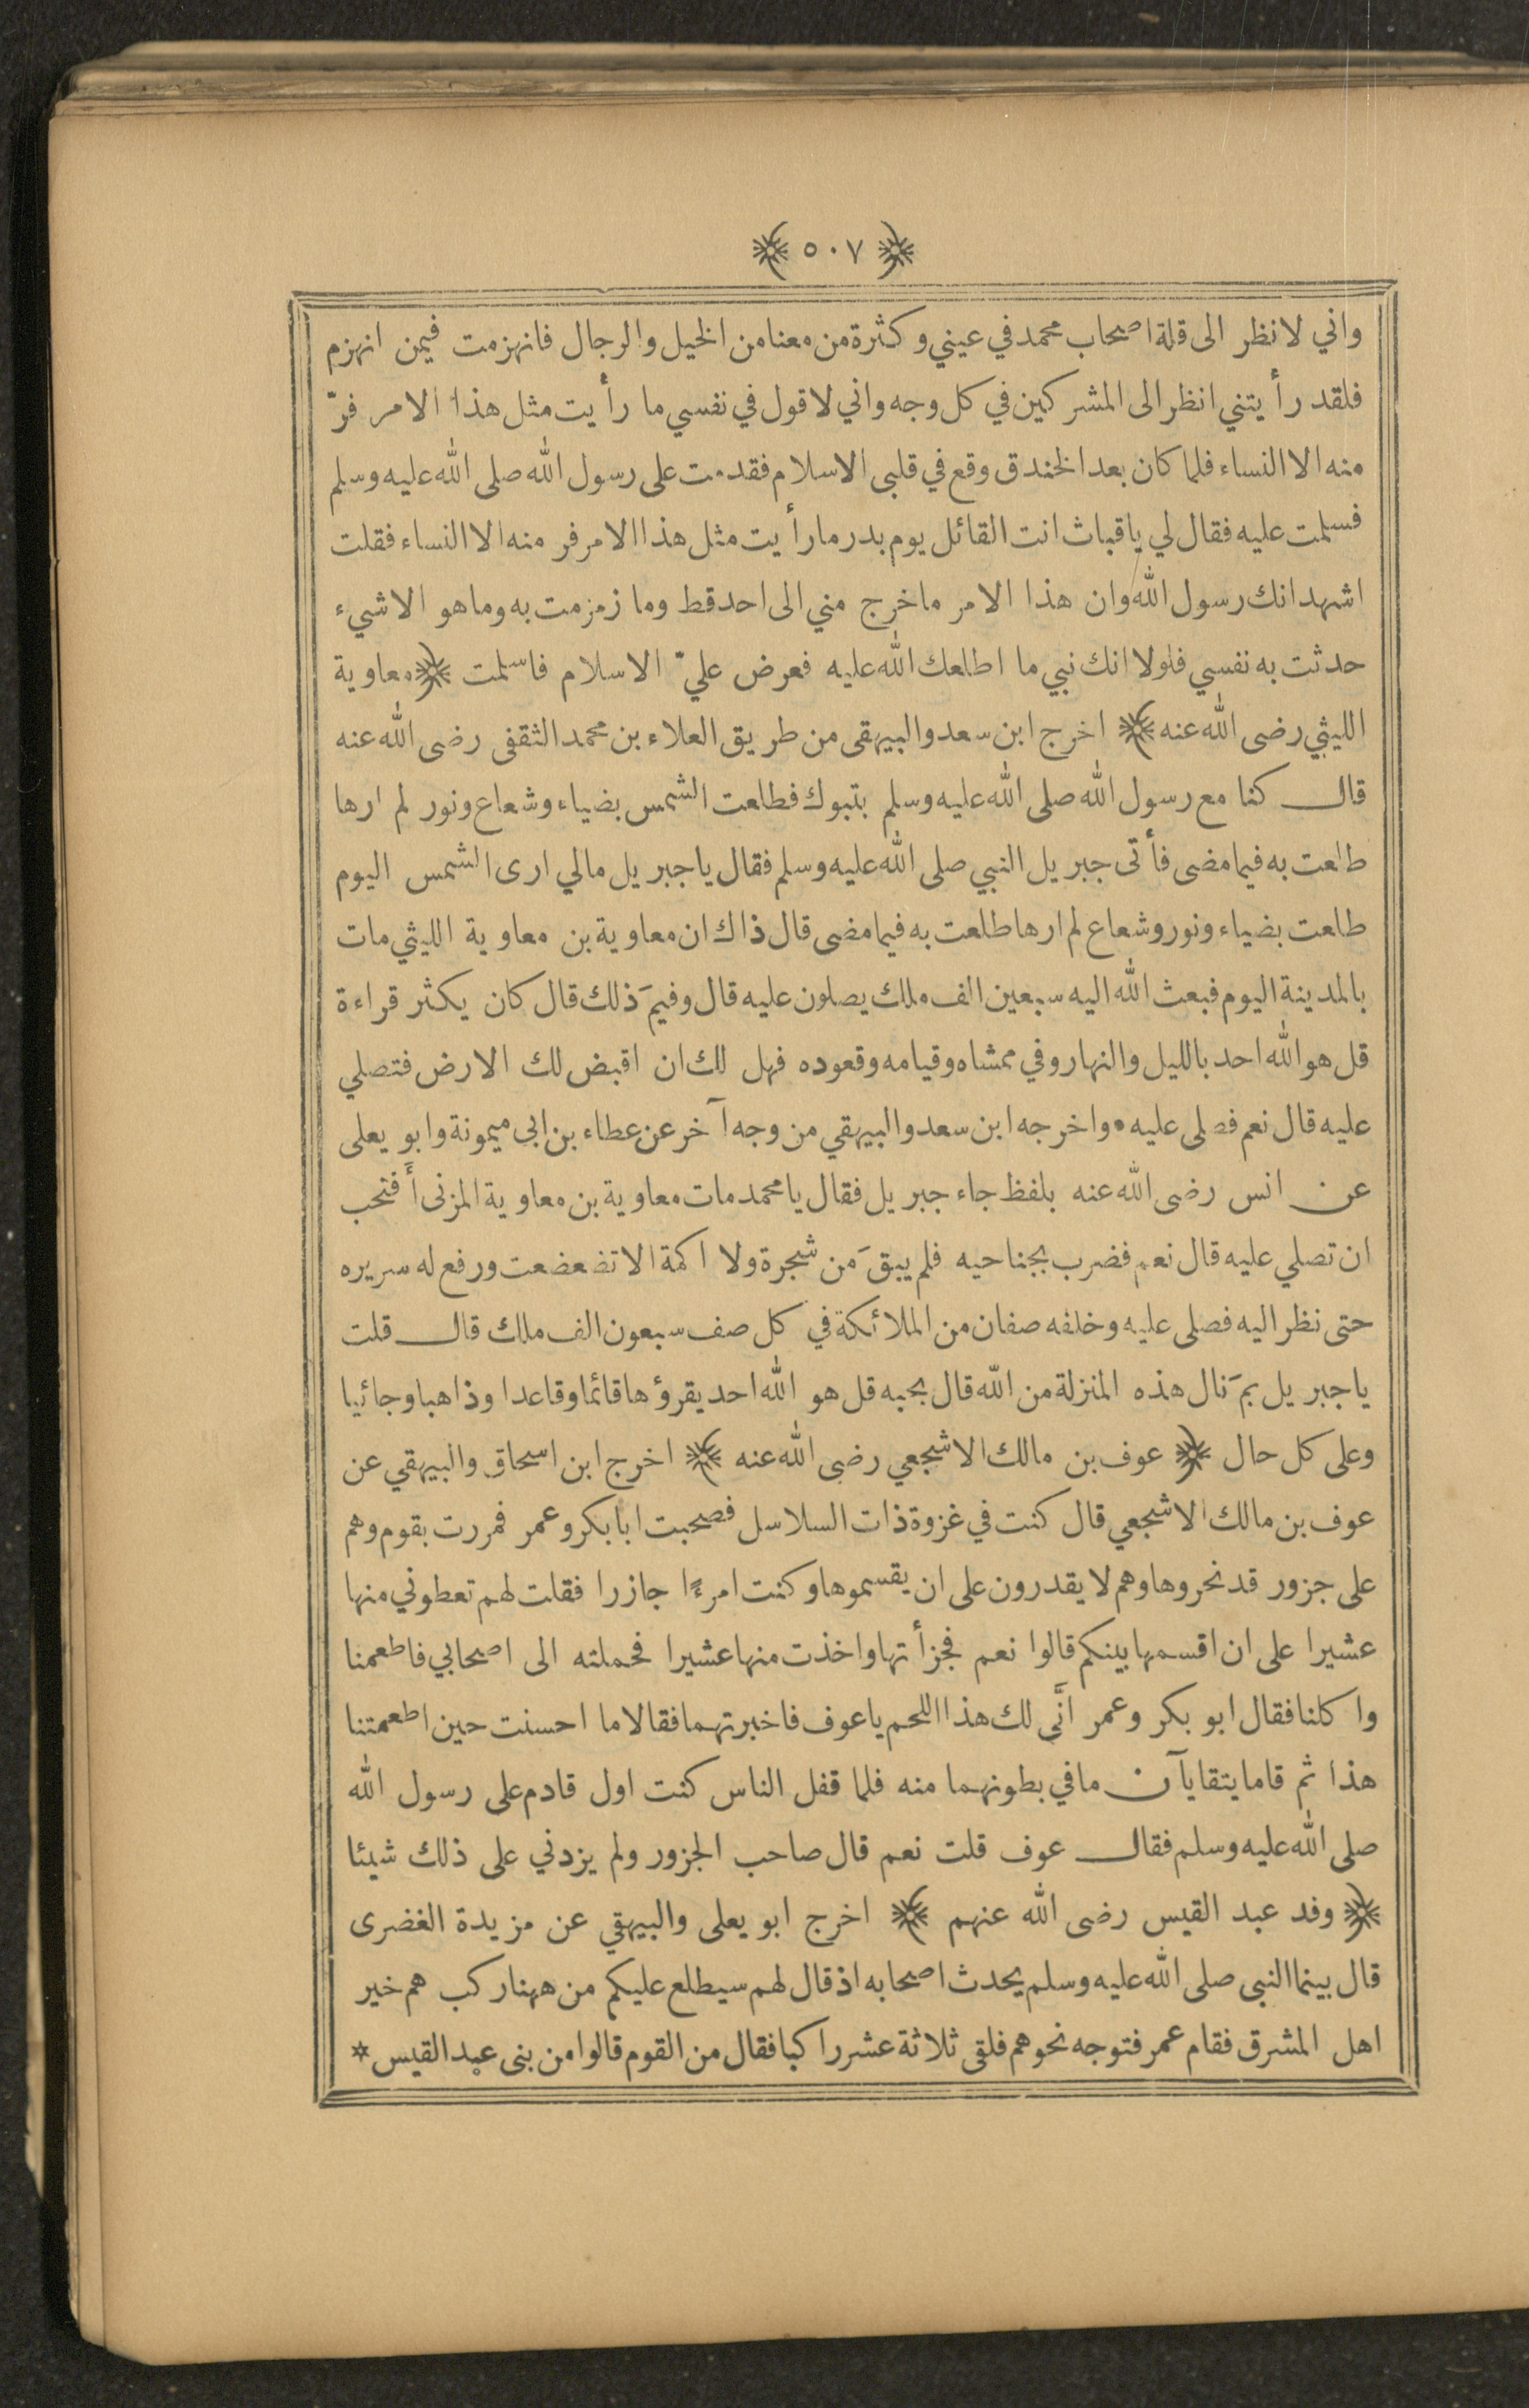 ﴿ ٥٠٧ ﴾
واني لانظر الى قلة اصحاب محمد في عيني وكثرة من معنا من الخيل والرجال فانهزمت فيمن انهزم
فلقد رأيتني انظر الى المشركين في كل وجه واني لاقول في نفسي ما رأيت مثل هذا الامر فرّ
منه الا النساء فلما كان بعد الخندق وقع في قلبى الاسلام فقدمت على رسول الله صلى الله عليه وسلم
فسلمت عليه فقال لي يا قباث انت القائل يوم بدر ما رأيت مثل هذا الامر فر منه الا النساء فقلت
اشهد انك رسول الله وان هذا الامر ما خرج مني الى احد قط وما زمزمت به وما هو الا شيء
حدثت به نفسي فلولا انك نبي ما اطلعك الله عليه فعرض عليّ الاسلام فاسلمت ﴿ معاوية
الليثي رضى الله عنه ﴾ اخرج ابن سعد والبيهقى من طريق العلاء بن محمد الثقفى رضى الله عنه
قال كنا مع رسول الله صلى الله عليه وسلم بتبوك فطلعت الشمس بضياء وشعاع ونور لم ارها
طلعت به فيما مضى فأتى جبريل النبي صلى الله عليه وسلم فقال يا جبريل مالي ارى الشمس اليوم
طلعت بضياء ونور وشعاع لم ارها طلعت به فيما مضى قال ذاك ان معاوية بن معاوية الليثي مات
بالمدينة اليوم فبعث الله اليه سبعين الف ملك يصلون عليه قال وفيمَ ذلك قال كان يكثر قراءة
قل هو الله احد بالليل والنهار وفي ممشاه وقيامه وقعوده فهل لك ان اقبض لك الارض فتصلي
عليه قال نعم فصلى عليه • واخرجه ابن سعد والبيهقي من وجه آخر عن عطاء بن ابى ميمونة وابو يعلى
عن انس رضى الله عنه بلفظ جاء جبريل فقال يا محمد مات معاوية بن معاوية المزنى أَفتحب
ان تصلي عليه قال نعم فضرب بجناحيه فلم يبقَ من شجرة ولا اكمة الا تضعضعت ورفع له سريره
حتى نظر اليه فصلى عليه وخلفه صفان من الملائكة في كل صف سبعون الف ملك قال قلت
يا جبريل بمَ نال هذه المنزلة من الله قال بحبه قل هو الله احد يقرؤها قائما وقاعدا وذاهبا وجائيا
وعلى كل حال ﴿ عوف بن مالك الاشجعي رضى الله عنه ﴾ اخرج ابن اسحاق والبيهقي عن
عوف بن مالك الاشجعي قال كنت في غزوة ذات السلاسل فصحبت ابا بكر وعمر فمررت بقوم وهم
على جزور قد نحروها وهم لا يقدرون على ان يقسموها وكنت امرءًا جازرا فقلت لهم تعطوني منها
عشيرا على ان اقسمها بينكم قالوا نعم فجزأتها واخذت منها عشيرا فحملته الى اصحابي فاطعمنا
واكلنا فقال ابو بكر وعمر انَّى لك هذا اللحم يا عوف فاخبرتهما فقالا ما احسنت حين اطعمتنا
هذا ثم قاما يتقايآن ما في بطونهما منه فلما قفل الناس كنت اول قادم على رسول الله
صلى الله عليه وسلم فقال عوف قلت نعم قال صاحب الجزور ولم يزدني على ذلك شيئا
﴿ وفد عبد القيس رضى الله عنهم ﴾ اخرج ابو يعلى والبيهقي عن مزيدة الغضرى
قال بينما النبى صلى الله عليه وسلم يحدث اصحابه اذ قال لهم سيطلع عليكم من ههنا ركب هم خير
اهل المشرق فقام عمر فتوجه نحوهم فلقى ثلاثة عشر راكبا فقال من القوم قالوا من بنى عبد القيس *